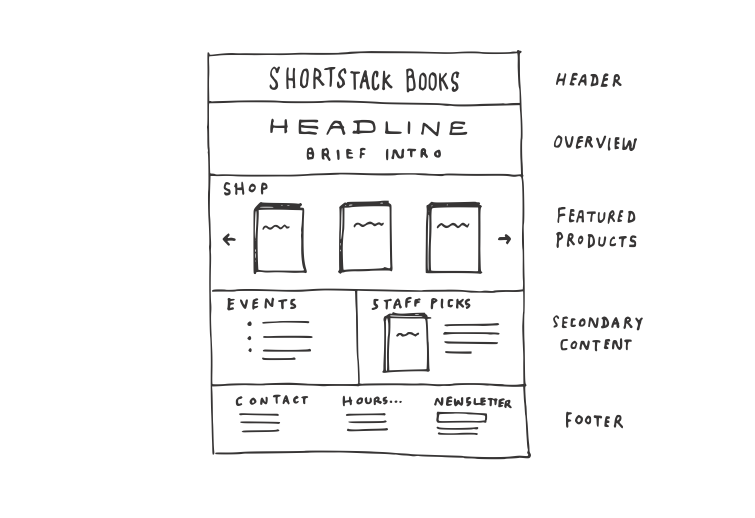 SHORTSTACK BOOKS
HEADER
HEADLINE
BRIEF INTRO
OVERVIEW
SHOP
FEATURED
PRODUCTS
← →
EVENTS
STAFF PICKS
SECONDARY
CONTENT
CONTACT
HOURS...
NEWSLETTER
FOOTER